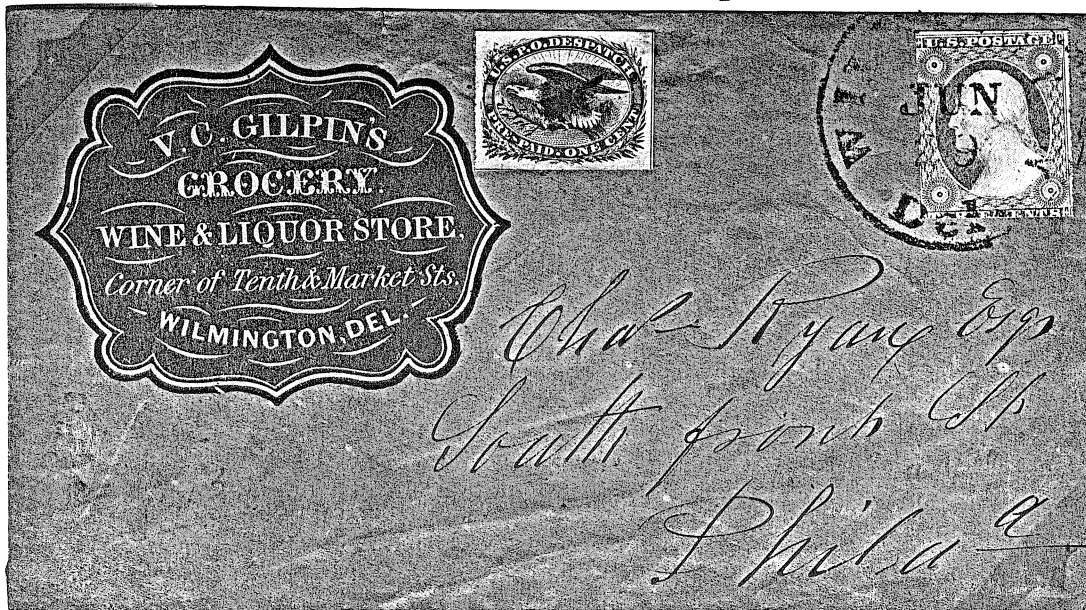 V. C. GILPIN'S
GROCERY.
WINE & LIQUOR STORE,
Corner of Tenth & Market Sts.
WILMINGTON, DEL.
U.S.P.O. DESPATCH
PRE-PAID. ONE CENT.
U.S. POSTAGE
JUN
9
Del
CENTS
Chas Ryan Esqr
South front St
Phila